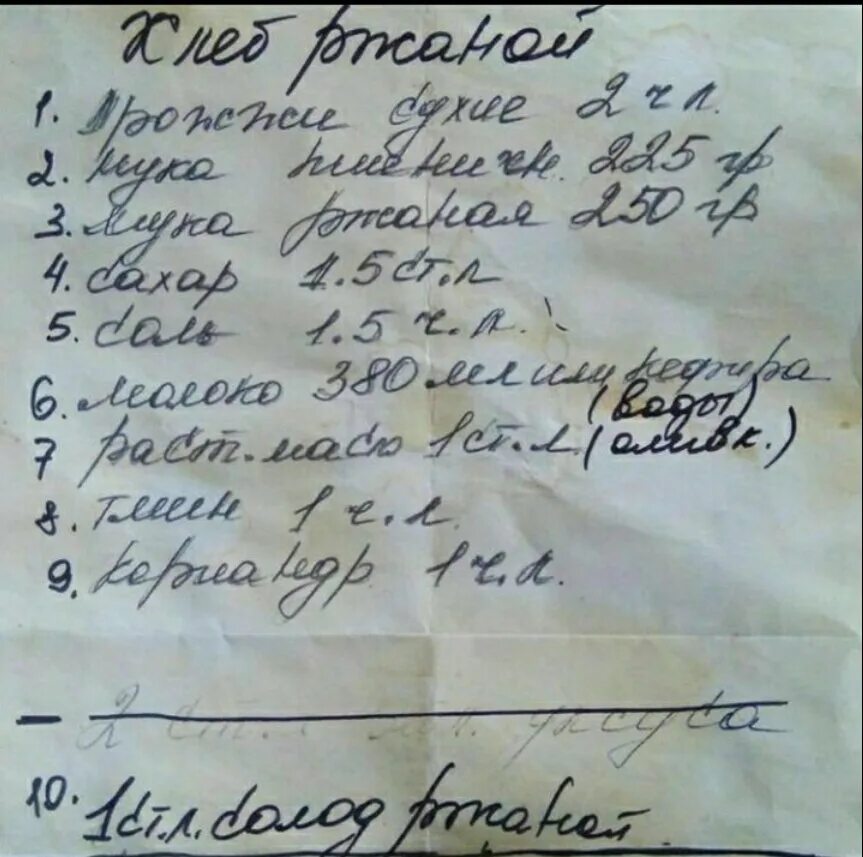 Хлеб ржаной
1. Дрожжи сухие 2 ч л.
2. мука пшеничн. 225 гр
3. Мука ржаная 250 гр
4. сахар 1.5 ст.л
5. соль 1.5 ч.л.
6. молоко 380 мл или кефира
(воды)
7 раст. масло 1 ст.л. (оливк.)
8. тмин 1 ч.л.
9. кориандр 1 ч.л.
2 ст. уксуса
10. 1 ст.л. солод ржаной